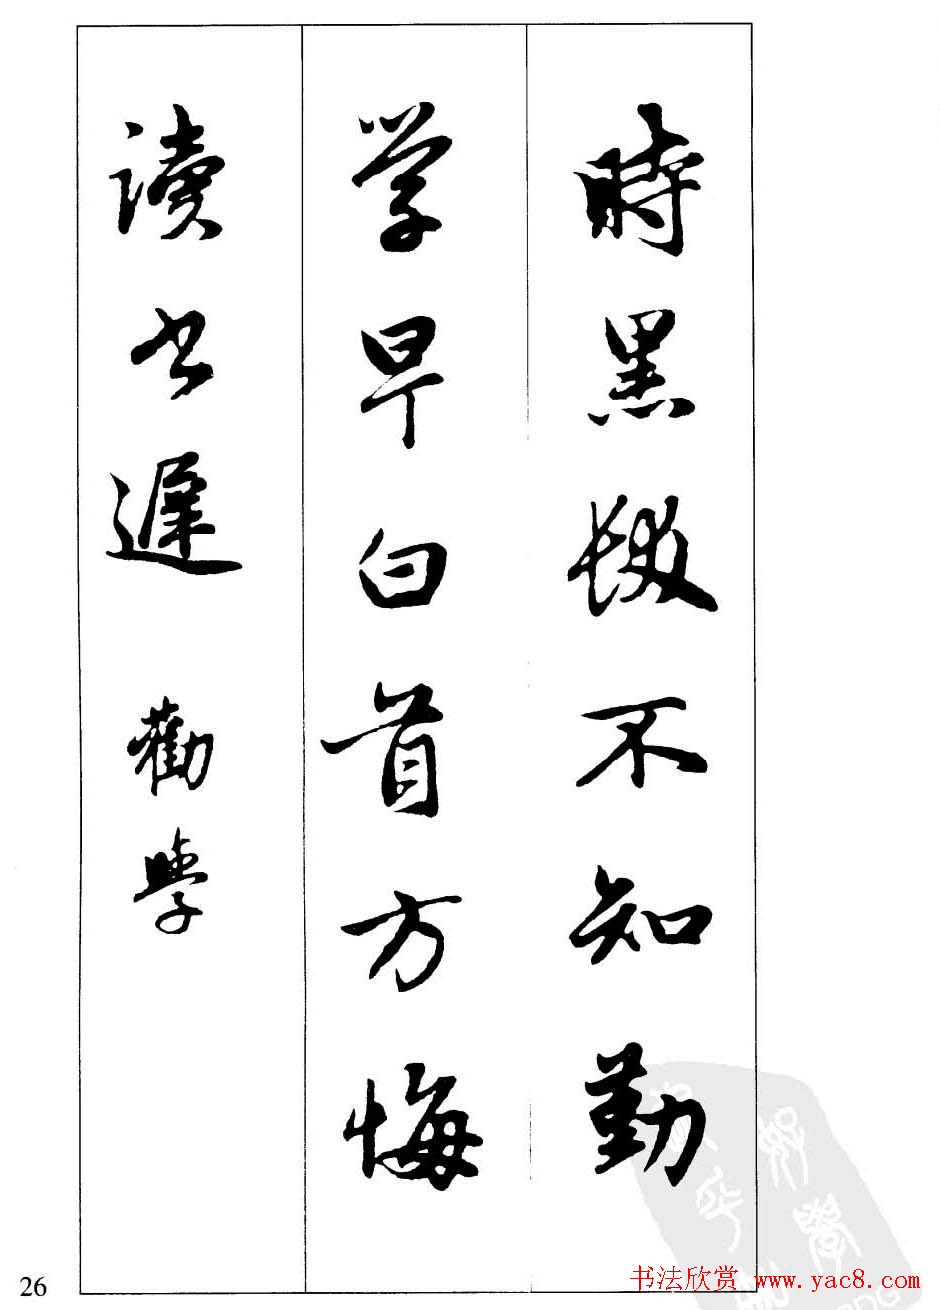 時黑髮不知勤
学早白首方悔
读书遲
勸學
26
书法欣赏 www.yac8.com